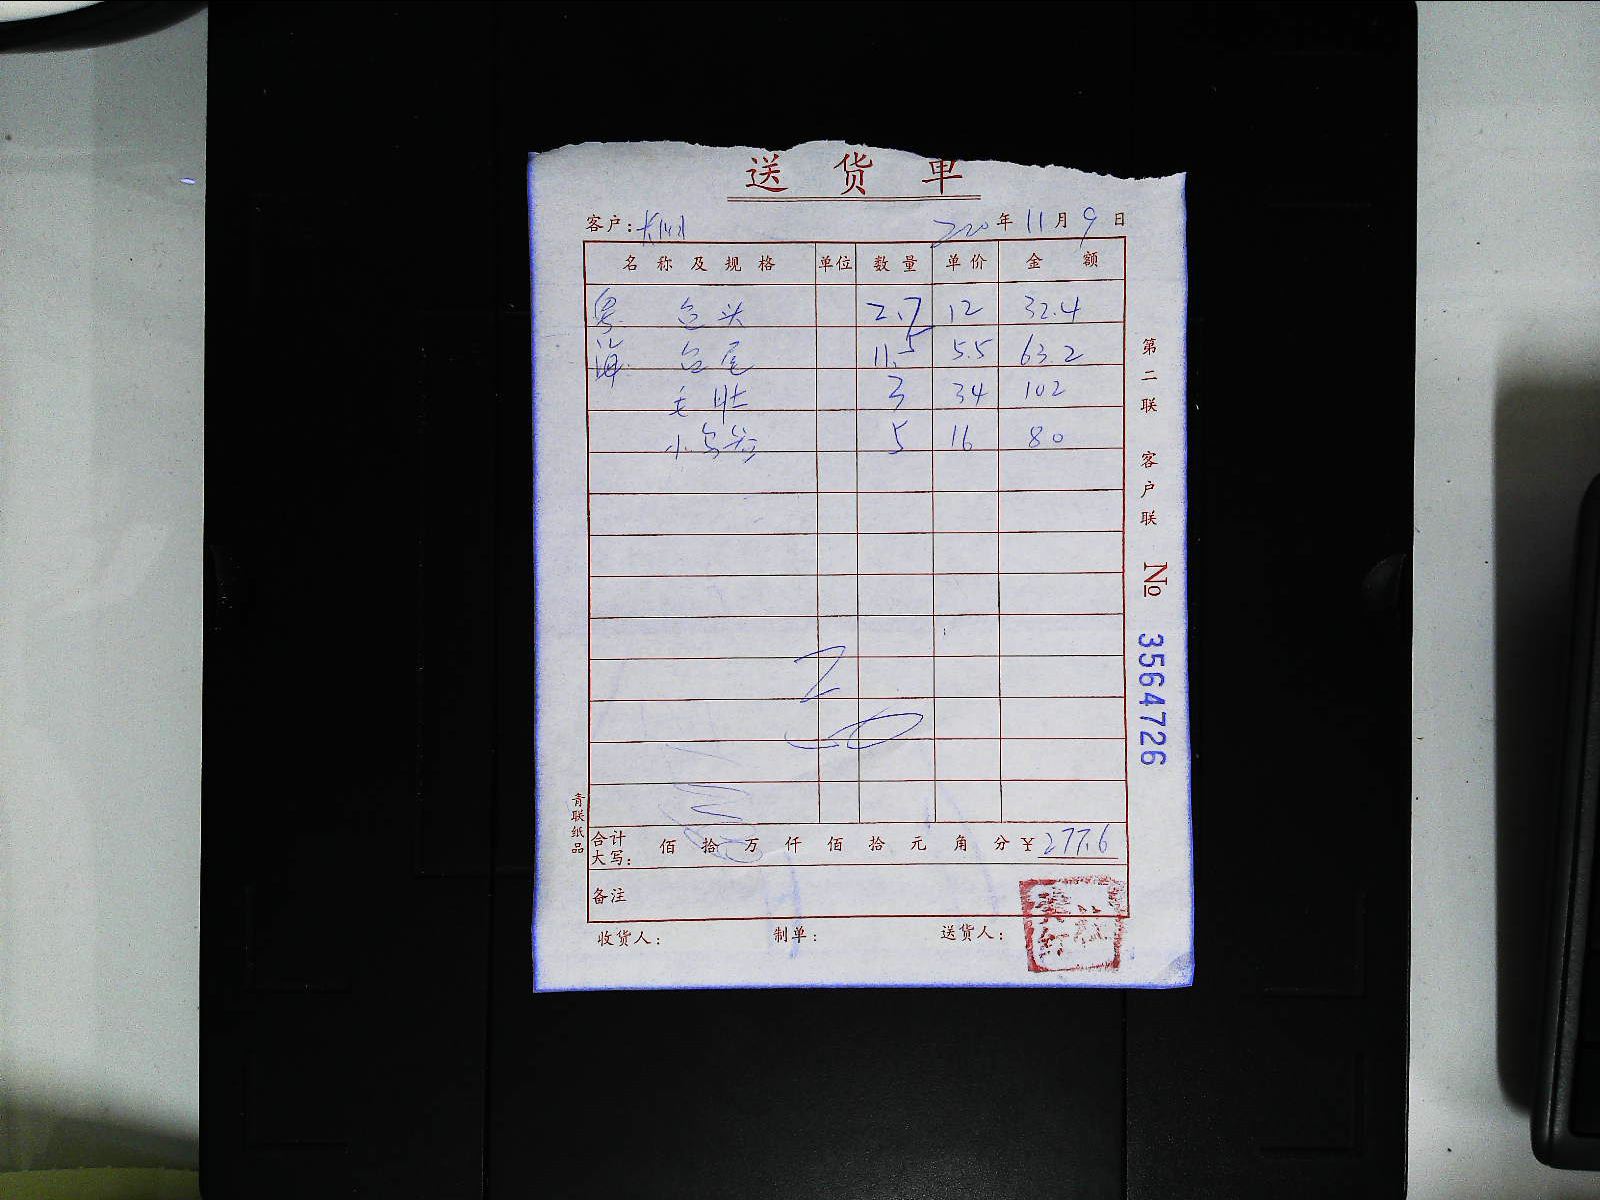 送 货 单
客户: 220年 11月 9日
名称及规格 单位 数量 单价 金额
粤 鱼头 2.7 12 32.4
海 鱼尾 11.5 5.5 63.2
毛肚 3 34 102
小乌 5 16 80
合计大写: 佰 拾 万 仟 佰 拾 元 角 分 ¥277.6
备注
收货人: 制单: 送货人:
第二联 客户联 No 3564726
青联纸品